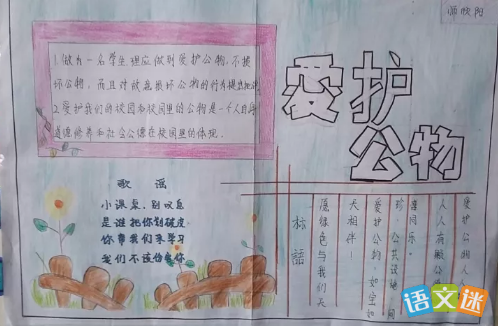 师欣阳
1.做为一名学生理应做到爱护公物,不损
坏公物,而且对故意损坏公物的行为提出批评
2.爱护我们的校园和校园里的公物是一个人自身
道德修养和社会公德在校园里的体现.
爱护
公物
歌谣
小课桌,别叹息
是谁把你划破皮
你帮我们来学习
我们不该伤害你
标语
愿绿色与我们天
天相伴!
爱护公物,如
珍 公共设施
喜同乐。
人人
爱护公物人
语文迷